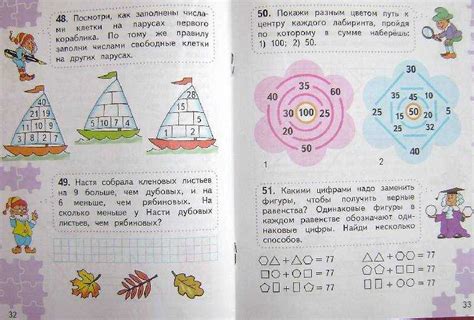 48. Посмотри, как заполнены числа-
ми клетки на парусах первого
кораблика. По тому же правилу
заполни числами свободные клетки
на других парусах.
40
21 19
11 10 9
5
4
28
15
7
3 9 2
49. Настя собрала кленовых листьев
на 9 больше, чем дубовых, и на
6 меньше, чем рябиновых. На
сколько меньше у Насти дубовых
листьев, чем рябиновых?
32
50. Покажи разным цветом путь к
центру каждого лабиринта, пройдя
по которому в сумме наберёшь:
1) 100; 2) 50.
40
35
60
45
30 100 25
35
1
30
25
40
45
15 50 5
5
10
35
20
2
51. Какими цифрами надо заменить
фигуры, чтобы получить верные
равенства? Одинаковые фигуры в
каждом равенстве обозначают оди-
наковые цифры. Найди несколько
способов.
= 77
= 77
= 77
= 77
= 77
= 77
33